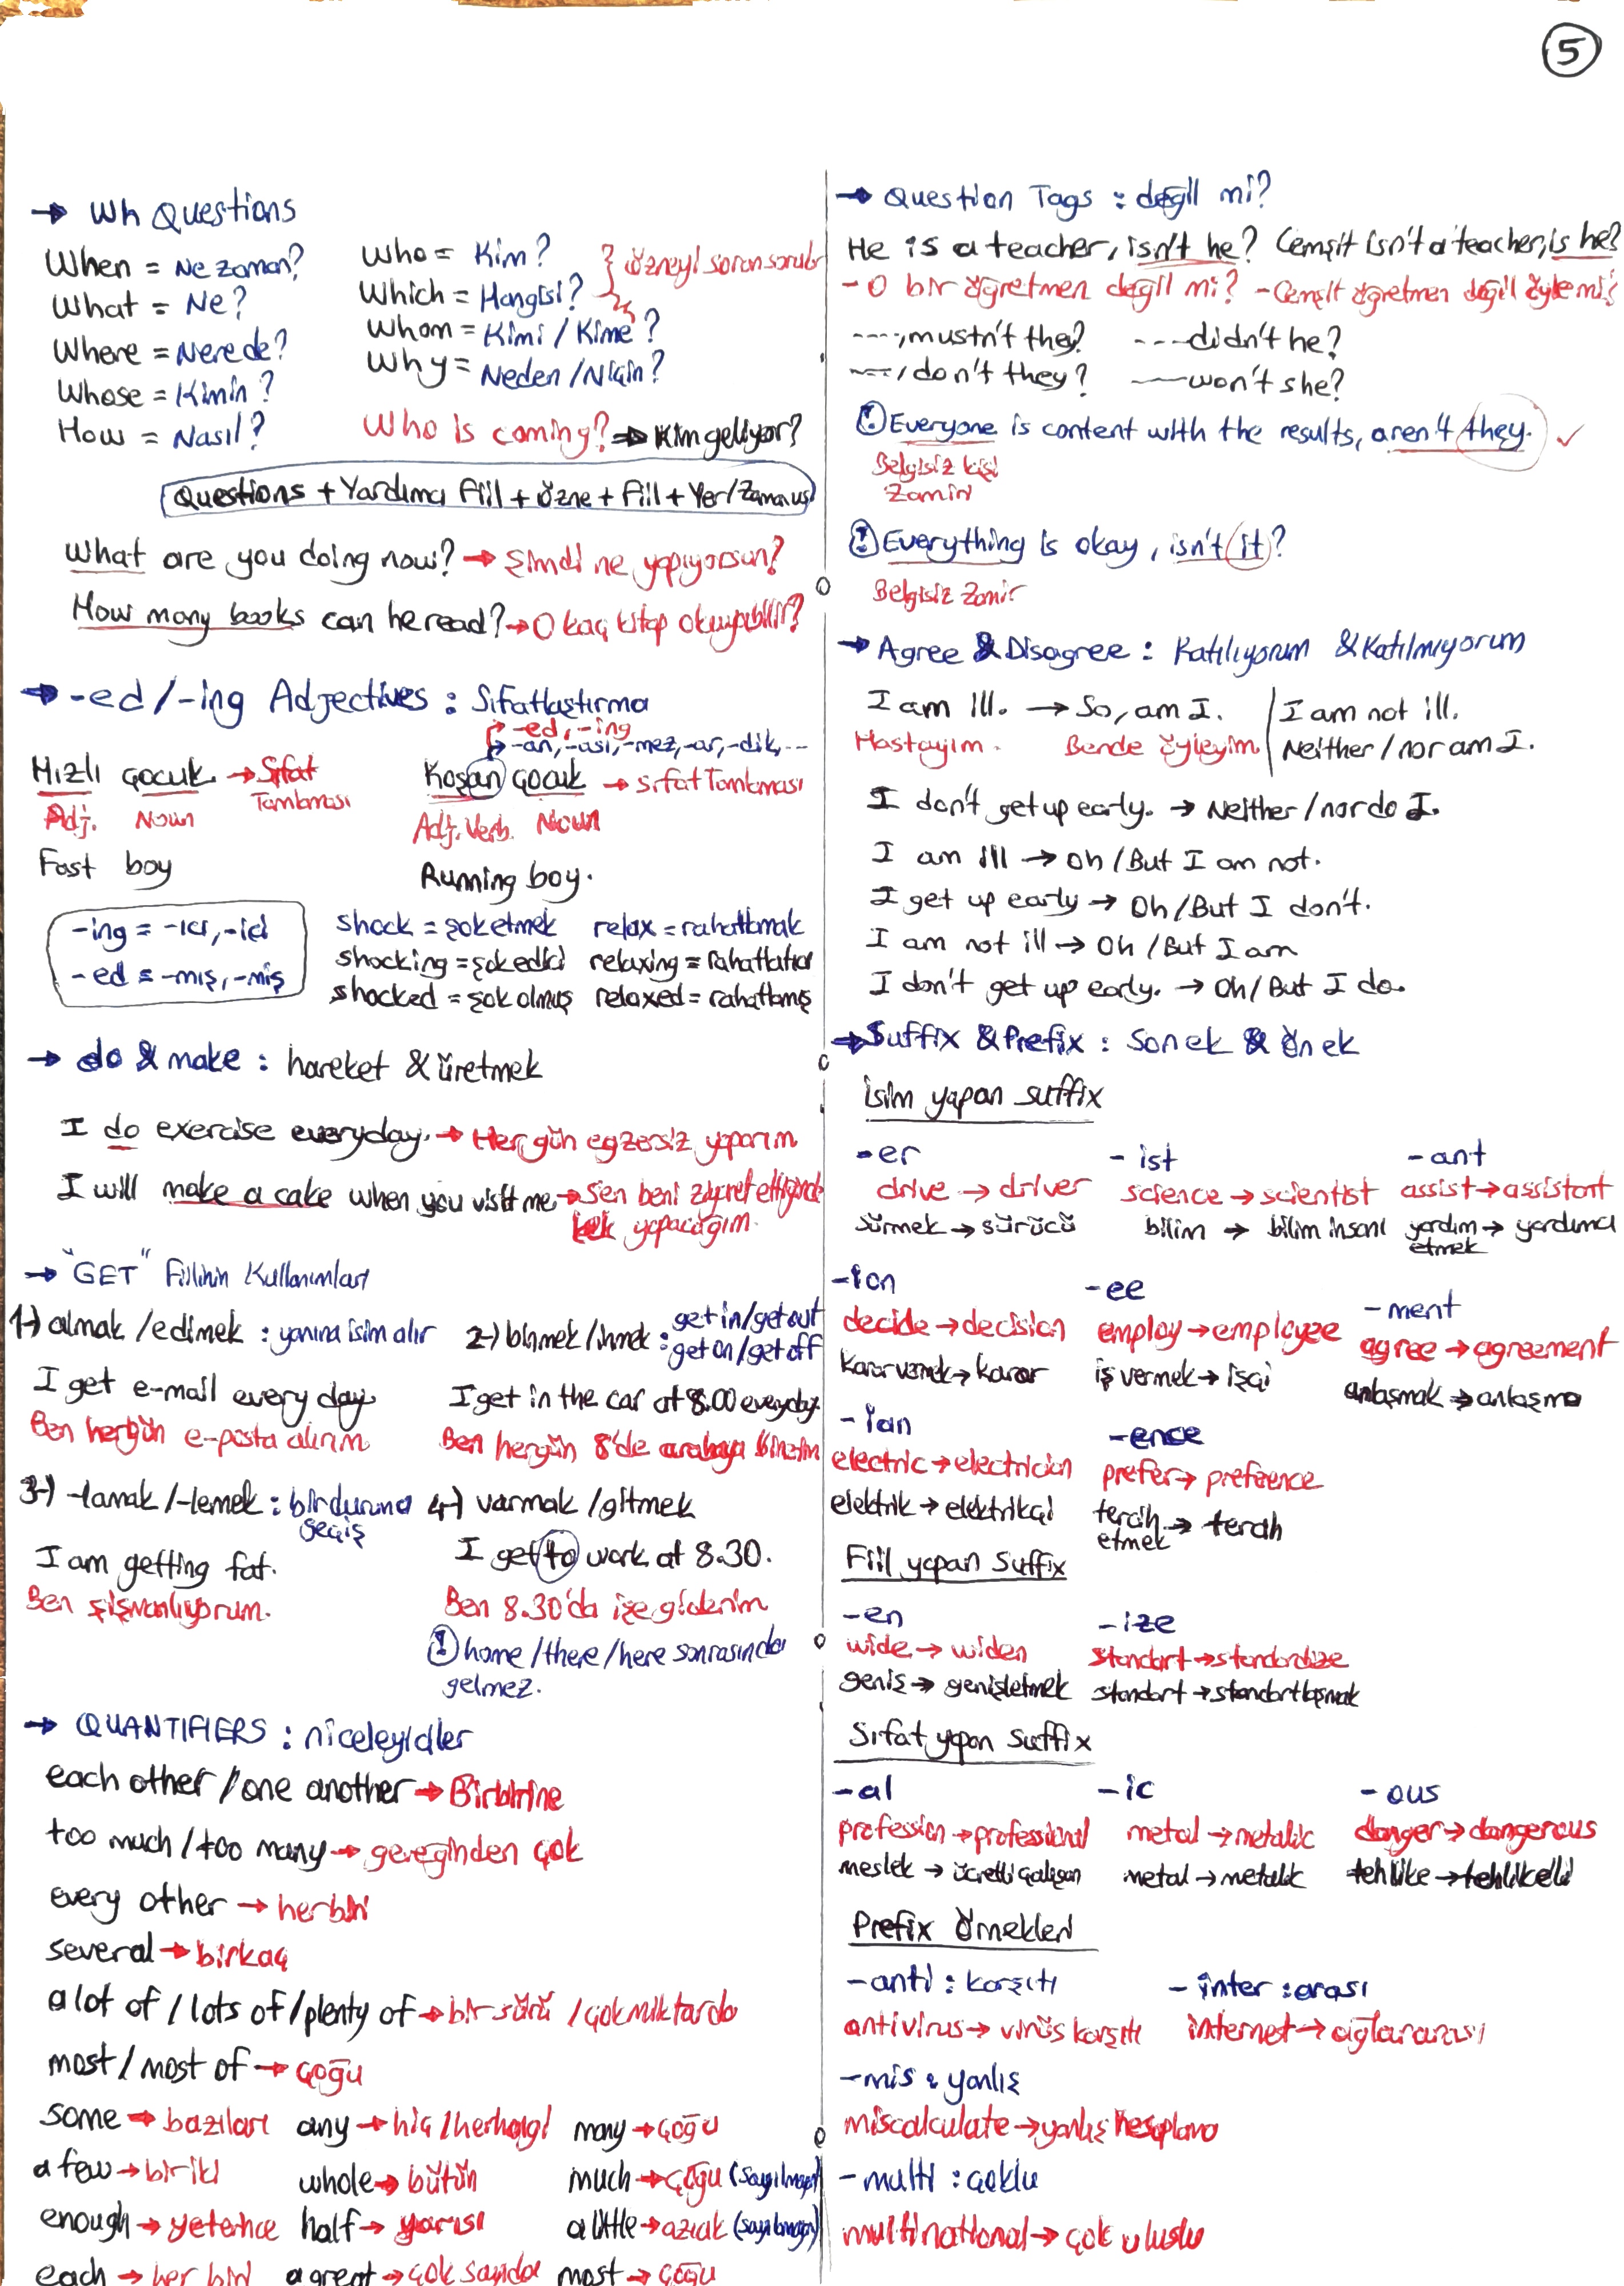 5
→ Wh Questions
When = Ne zaman?
What = Ne?
Where = Nerede?
Whose = Kimin?
How = Nasıl?
Who = Kim?
Which = Hangisi?
} özneyi soran sorular
Whom = Kimi / Kime?
Why = Neden / Niçin?
Who is coming? → Kim geliyor?
Questions + Yardımcı fiil + özne + fiil + Yer/Zaman us
What are you doing now? → Şimdi ne yapıyorsun?
How many books can he read? → O kaç kitap okuyabilir?
→ -ed / -ing Adjectives : Sıfatlaştırma
→ -ed, -ing
→ -an, -ası, -mez, -ar, -dik, ...
Hızlı çocuk → Sıfat Tamlaması
Adj. Noun
Fast boy
Koşan çocuk → sıfat Tamlaması
Adj. Verb. Noun
Running boy.
-ing = -ıcı, -ici
-ed = -mış, -miş
shock = şok etmek relax = rahatlamak
shocking = şok edici relaxing = rahatlatıcı
shocked = şok olmuş relaxed = rahatlamış
→ do & make : hareket & üretmek
I do exercise everyday. → Her gün egzersiz yaparım
I will make a cake when you visit me → Sen beni ziyaret ettiğinde
kek yapacağım.
→ "GET" Fiilinin Kullanımları
1-) almak / edinmek : yanına isim alır
I get e-mail every day
Ben hergün e-posta alırım
2-) binmek / inmek : get in / get out
get on / get off
I get in the car at 8.00 everyday.
Ben hergün 8'de arabaya binerim
3-) -lamak / -lemek : bir duruma
geçiş
I am getting fat.
Ben şişmanlıyorum.
4-) varmak / gitmek
I get to work at 8.30.
Ben 8.30'da işe giderim
! home / there / here sonrasında
gelmez.
→ QUANTIFIERS : niceleyiciler
each other / one another → Birbirine
too much / too many → gereğinden çok
every other → herbiri
several → birkaç
a lot of / lots of / plenty of → bir sürü / çok miktarda
most / most of → çoğu
some → bazıları any → hiç / herhangi many → çoğu
a few → bir iki whole → bütün much → çoğu (sayılmayan)
enough → yeterince half → yarısı a little → azıcık (sayılmayan)
each → her biri a great → çok sayıda most → çoğu
→ Question Tags : değil mi?
He is a teacher, isn't he? Cemşit isn't a teacher, is he?
- O bir öğretmen değil mi? - Cemşit öğretmen değil öyle mi?
----, mustn't they? ----didn't he?
----, don't they? ----won't she?
! Everyone is content with the results, aren't they. ✓
Belgisiz kişi
Zamiri
! Everything is okay, isn't it?
Belgisiz Zamir
→ Agree & Disagree : Katılıyorum & Katılmıyorum
I am ill. → So, am I.
Hastayım. Bende öyleyim.
I am not ill.
Neither / nor am I.
I don't get up early. → Neither / nor do I.
I am ill → Oh / But I am not.
I get up early → Oh / But I don't.
I am not ill → Oh / But I am
I don't get up early. → Oh / But I do.
→ Suffix & Prefix : Sonek & Önek
İsim yapan suffix
-er -ist -ant
drive → driver science → scientist assist → assistant
sürmek → sürücü bilim → bilim insanı yardım etmek → yardımcı
-ion -ee -ment
decide → decision employ → employee agree → agreement
karar vermek → karar iş vermek → işçi anlaşmak → anlaşma
-ian -ence
electric → electrician prefer → preference
elektrik → elektrikçi tercih etmek → tercih
Fiil yapan suffix
-en -ize
wide → widen standart → standardize
geniş → genişletmek standart → standartlaşmak
Sıfat yapan suffix
-al -ic -ous
profession → professional metal → metalic danger → dangerous
meslek → ücretli çalışan metal → metalik tehlike → tehlikeli
Prefix Örnekleri
-anti : karşıtı -inter : arası
antivirus → virüs karşıtı internet → ağlararası
-mis : yanlış
miscalculate → yanlış hesaplama
-multi : çoklu
multinational → çok uluslu